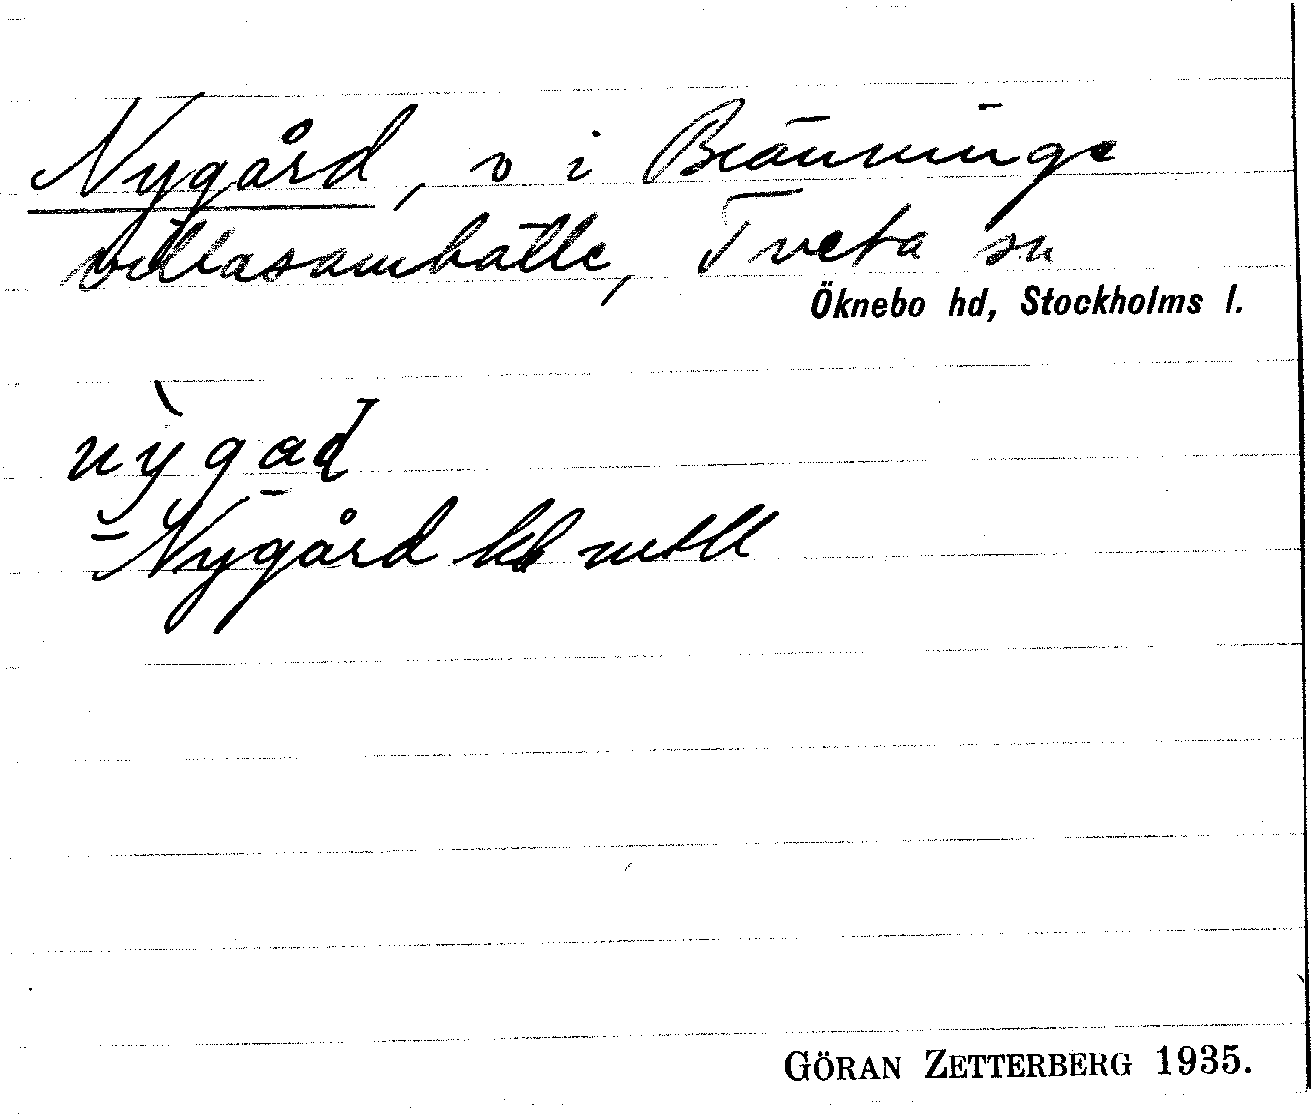 Nygård, v i Bränninge
villasamhälle, Tveta sn
Öknebo hd, Stockholms l.
nỳgad
= Nygård kb
GÖRAN ZETTERBERG 1935.